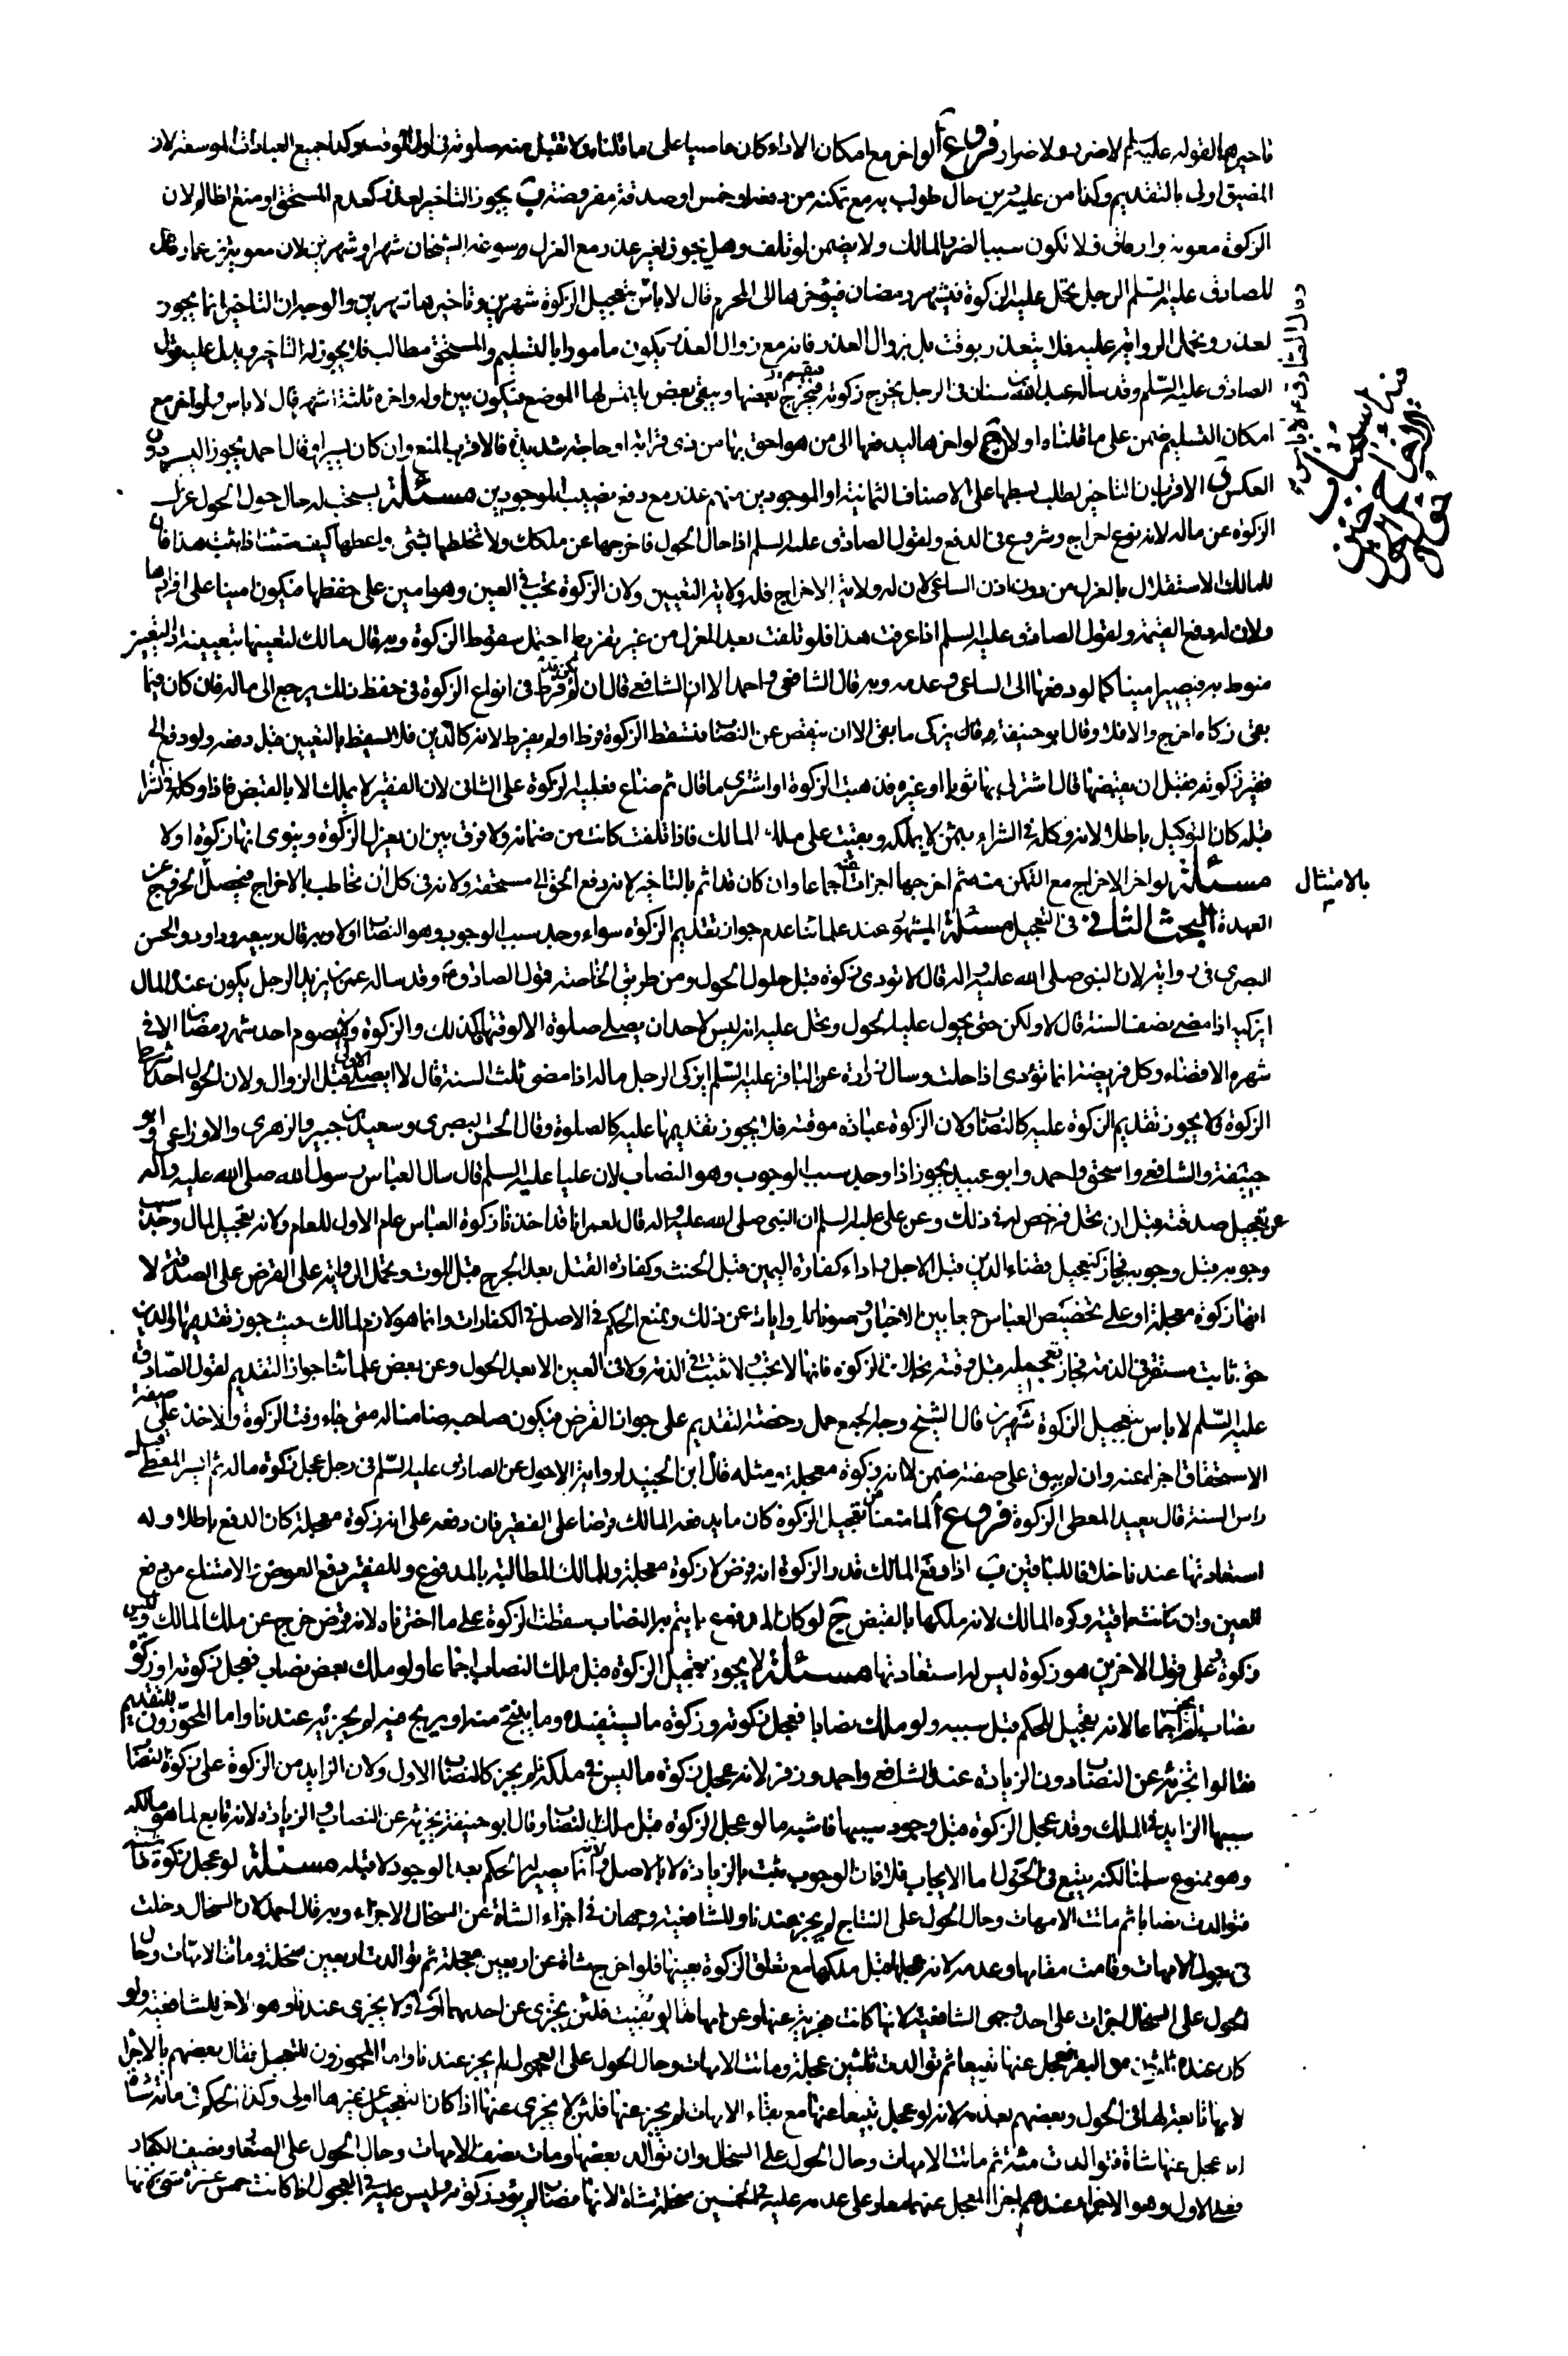 تاخيرها لقوله عليه لم لا ضرر ولا ضرار فروع آ لو اخر مع امكان الاداء كان عاصيا على ما قلناه ولا تقبل منه صلوته في اول الوقت وكذا جميع العبادات الموسعة لان
المضيق اولى بالتقديم وكذا من عليه دين حال طولب به مع تمكنه من دفعه او خمس او صدقة مفروضة ب يجوز التاخير لعذر كعدم المستحق او منع الظالم لان
الزكوة معونة وارفاق فلا تكون سببا لضرر المالك ولا يضمن لو تلف وهل يجوز لغير عذر مع العزل سوغه الشيخان شهرا وشهرين لان معوية بن عمار قال
للصادق عليه السلم الرجل تحل عليه الزكوة في شهر رمضان فيؤخرها الى المحرم قال لا باس بتعجيل الزكوة شهرين وتاخيرها شهرين والوجه ان التاخير انما يجوز
لعذر وتحمل الرواية عليه فلا يتعذر بوقت بل بزوال العذر فانه مع زوال العذر يكون مامورا بالتسليم والمستحق مطالب فلا يجوز له التاخير ويدل عليه قول
الصادق عليه السلم وقد ساله عبد الله بن سنان في الرجل يخرج زكوته فيقسم بعضها ويبقى بعض يلتمس لها الموضع فيكون بين اوله واخره ثلثة اشهر قال لا باس ولو اخر مع
امكان التسليم ضمن على ما قلناه اولا ج لو اخرها ليدفعها الى من هو احق بها من ذي قرابة او حاجة شديدة فالاقرب المنع وان كان يسيرا وقال احمد يجوز اليسير دون
العكس د الاقرب ان التاخير لطلب بسطها على الاصناف الثمانية او الموجودين منهم عذر مع دفع نصيب الموجودين مسئلة يستحب له حال حول الحول عزل
الزكوة عن ماله لانه نوع اخراج وشروع في الدفع ولقول الصادق عليه السلم اذا حال الحول فاخرجها عن ملكك ولا تخلطها بشئ واعطها كيف شئت اذا ثبت هذا فان
للمالك الاستقلال بالعزل من دون اذن الساعي لان له ولاية الاخراج فله ولاية التعيين ولان الزكوة تجب في العين وهو امين على حفظها فيكون امينا على افرادها
ولان له دفع القيمة ولقول الصادق عليه السلم اذا عرفت هذا فلو تلفت بعد العزل من غير تفريط احتمل سقوط الزكوة وبه قال مالك لتعينها بتعيينه اذ التعيين
منوط به فيصير امينا كما لو دفعها الى الساعي وعدمه وبه قال الشافعي واحمد الا ان الشافعي قال ان لم يكن قد فرط في انواع الزكوة في حفظ ذلك يرجع الى ماله فان كان فيما
بقى زكاة اخرج والا فلا وقال ابو حنيفة يزكي ما بقى الا ان ينقص عن النصاب فتسقط الزكوة فرط او لم يفرط لانه كالدين فلا يسقط بالتعيين قبل دفعه ولو دفع الى
فقير زكوته فقبل ان يقبضها قال اشتر لي بها ثوبا او غيره فذهبت الزكوة او اشترى ما قال ثم ضاع فعليه الزكوة على الثاني لان الفقير لا يملك الا بالقبض فاذا وكله في الشراء
قبله كان التوكيل باطلا لانه وكله في الشراء بثمن لا يملكه وبقيت على ملك المالك فاذا تلفت كانت من ضمانه ولا فرق بين ان يعزل الزكوة وينوي انها زكوة او لا
مسئلة لو اخر الاخراج مع التمكن منه ثم اخرجها اجزات عنه اجماعا وان كان قد اثم بالتاخير لانه دفع الحق الى مستحقه ولانه في كل آن مخاطب بالاخراج فيحصل الخروج عن
العهدة البحث الثاني في التعجيل مسئلة المشهور عند علمائنا عدم جواز تقديم الزكوة سواء وجد سبب الوجوب وهو النصاب اولا وبه قال ربيعة وداود والحسن
البصري في رواية لان النبي صلى الله عليه واله قال لا تؤدى زكوة قبل حلول الحول ومن طريق الخاصة قول الصادق ع وقد ساله عمر بن يزيد الرجل يكون عنده المال
ايزكيه اذا مضى نصف السنة قال لا ولكن حتى يحول عليه الحول وتحل عليه انه ليس لاحد ان يصلي صلوة الا لوقتها وكذلك والزكوة ولا يصوم احد شهر رمضان الا في
شهره الا قضاء وكل فريضة انما تؤدى اذا حلت وسال زرارة عن الباقر عليه السلم ايزكي الرجل ماله اذا مضى ثلث السنة قال لا ايصلي الاولى قبل الزوال ولان الحول احد شرطي
الزكوة فلا يجوز تقديم الزكوة عليه كالنصاب ولان الزكوة عبادة موقتة فلا يجوز تقديمها عليه كالصلوة وقال الحسن البصري وسعيد بن جبير والزهري والاوزاعي وابو
حنيفة والشافعي واسحق واحمد وابو عبيد يجوز اذا وجد سبب الوجوب وهو النصاب لان عليا عليه السلم قال سال العباس رسول الله صلى الله عليه واله
عن تعجيل صدقته قبل ان تحل فرخص له في ذلك وعن علي عليه السلم ان النبي صلى الله عليه واله قال لعمر انا قد اخذنا زكوة العباس عام الاول للعام ولانه تعجيل لمال وجد سبب
وجوبه قبل وجوبه فجاز كتعجيل قضاء الدين قبل الاجل واداء كفارة اليمين قبل الحنث وكفارة القتل بعد الجرح قبل الموت وتحمل الرواية على القرض على الصدقة لا
انها زكوة معجلة او على تخصيص العباس جمعا بين الاخبار وصونا للروايات عن ذلك ونمنع الحكم في الاصل في الكفارات وانما هو لازم لمالك حيث جوز تقديمها والدين
حق ثابت مستقر في الذمة فجاز تعجيله قبل وقته بخلاف الزكوة فانها لا تجب ولا تثبت في الذمة ولا في العين الا بعد الحول وعن بعض علمائنا جواز التقديم لقول الصادق
عليه السلم لا باس بتعجيل الزكوة شهرين قال الشيخ وجه الجمع حمل رخصة التقديم على جواز القرض فيكون صاحبه ضامنا له متى جاء وقت الزكوة والاخذ على صفة
الاستحقاق اجزا عنه وان لم يبق على صفته ضمن لا انه زكوة معجلة ومثله قال ابن الجنيد لرواية الاحول عن الصادق عليه السلم في رجل عجل زكوة ماله ثم ايسر المعطى قبل
راس السنة قال يعيد المعطي الزكوة فروع آ لما منعنا من تعجيل الزكوة كان ما يدفعه المالك قرضا على الفقير فان دفعه على انه زكوة معجلة كان الدفع باطلا وله
استعادتها عندنا خلافا للباقين ب اذا دفع المالك قدر الزكوة انه قرض لا زكوة معجلة وللمالك المطالبة بالمدفوع وللفقير دفع العوض والامتناع من دفع
العين وان كانت باقية وكره المالك لانه ملكها بالقبض ج لو كان المدفوع يتم به النصاب سقطت الزكوة على ما اخترناه لانه قرض خرج عن ملك المالك وليس
زكوة وعلى قول الاخرين هو زكوة ليس له استعادتها مسئلة لا يجوز تعجيل الزكوة قبل ملك النصاب اجماعا ولو ملك بعض نصاب فعجل زكوته او زكوة
نصاب لم يجز اجماعا لانه تعجيل للحكم قبل سببه ولو ملك نصابا فعجل زكوته وزكوة ما يستفيده وما ينتج منه او يربح فيه لم يجزئه عندنا واما المجوزون للتقديم
فقالوا تجزئه عن النصاب دون الزيادة عند الشافعي واحمد وزفر لانه عجل زكوة ما ليس في ملكه فلم يجز كالنصاب الاول ولان الزايد من الزكوة على زكوة النصاب
سببها الزايد في الملك وقد عجل الزكوة قبل وجود سببها فاشبه ما لو عجل الزكوة قبل ملك النصاب وقال ابو حنيفة يجزئه عن النصاب والزيادة لانه تابع لما هو مالكه
وهو ممنوع سلمنا لكنه يتبع في الحول اما الايجاب فلا فان الوجوب ثبت بالزيادة لا بالاصل ولانه انما يصير له حكم بعد الوجود لا قبله مسئلة لو عجل زكوة نصاب
فتوالدت نصابا ثم ماتت الامهات وحال الحول على النتاج لم يجز عندنا وللشافعية وجهان في اجزاء الشاة عن السخال الاجزاء وبه قال احمد لان السخال دخلت
في حول الامهات وقامت مقامها وعدمه لانه عجلها قبل ملكها مع تعلق الزكوة بعينها فلو اخرج شاة عن اربعين معجلة ثم توالدت اربعين سخلة وماتت الامهات وحال
الحول على السخال اجزات على احد وجهي الشافعية لانها كانت مجزية عنها وعن امهاتها لو بقيت فلئن تجزى عن احديهما اولى ولا يجزى عندنا وهو الاخر للشافعية ولو
كان عنده ثلثين من البقر فعجل عنها تبيعا ثم توالدت ثلثين عجلة وماتت الامهات وحال الحول على العجول لم يجز عندنا واما المجوزون للتعجيل فقال بعضهم بالاجزاء
لانها تابعة لها في الحول وبعضهم بعدمه لانه لو عجل تبيعا عنها مع بقاء الامهات لم يجز عنها فلئن لا يجزى عنها اذا كان التعجيل عن غيرها اولى وكذا الحكم في مائة شاة
اذا عجل عنها شاة فتوالدت مئة ثم ماتت الامهات وحال الحول على السخال وان توالد بعضها ومات نصف الامهات وحال الحول على الصغار ونصف الكبار
فعلى الاول وهو الاجزاء عندهم اجزا المعجل عنهما معا وعلى عدمه عليه في الخمسين سخلة شاة لانها نصاب لم يؤد زكوته وليس عليه في العجول اذا كانت خمس عشرة شئ لانها
بالامتثال